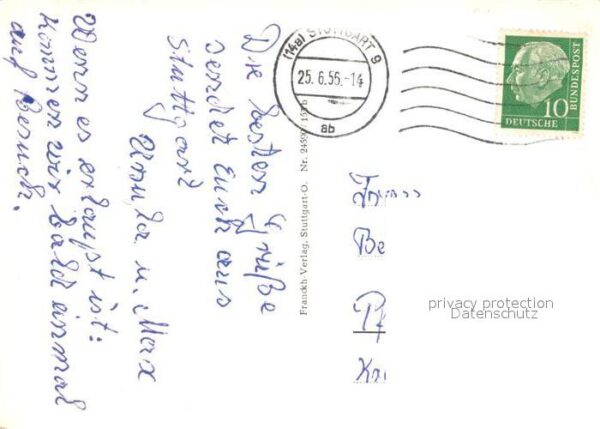 Die besten Grüße
sendet Euch aus
Stuttgart
Ursula u. Max
Wenn es erlaupt ist:
kommen wir bald einmal
auf Besuch.
Franckh-Verlag, Stuttgart-O. Nr.
(14a) STUTTGART 9
25.6.56.-14
ab
10
DEUTSCHE
BUNDESPOST
Be
Pf
privacy protection
Datenschutz